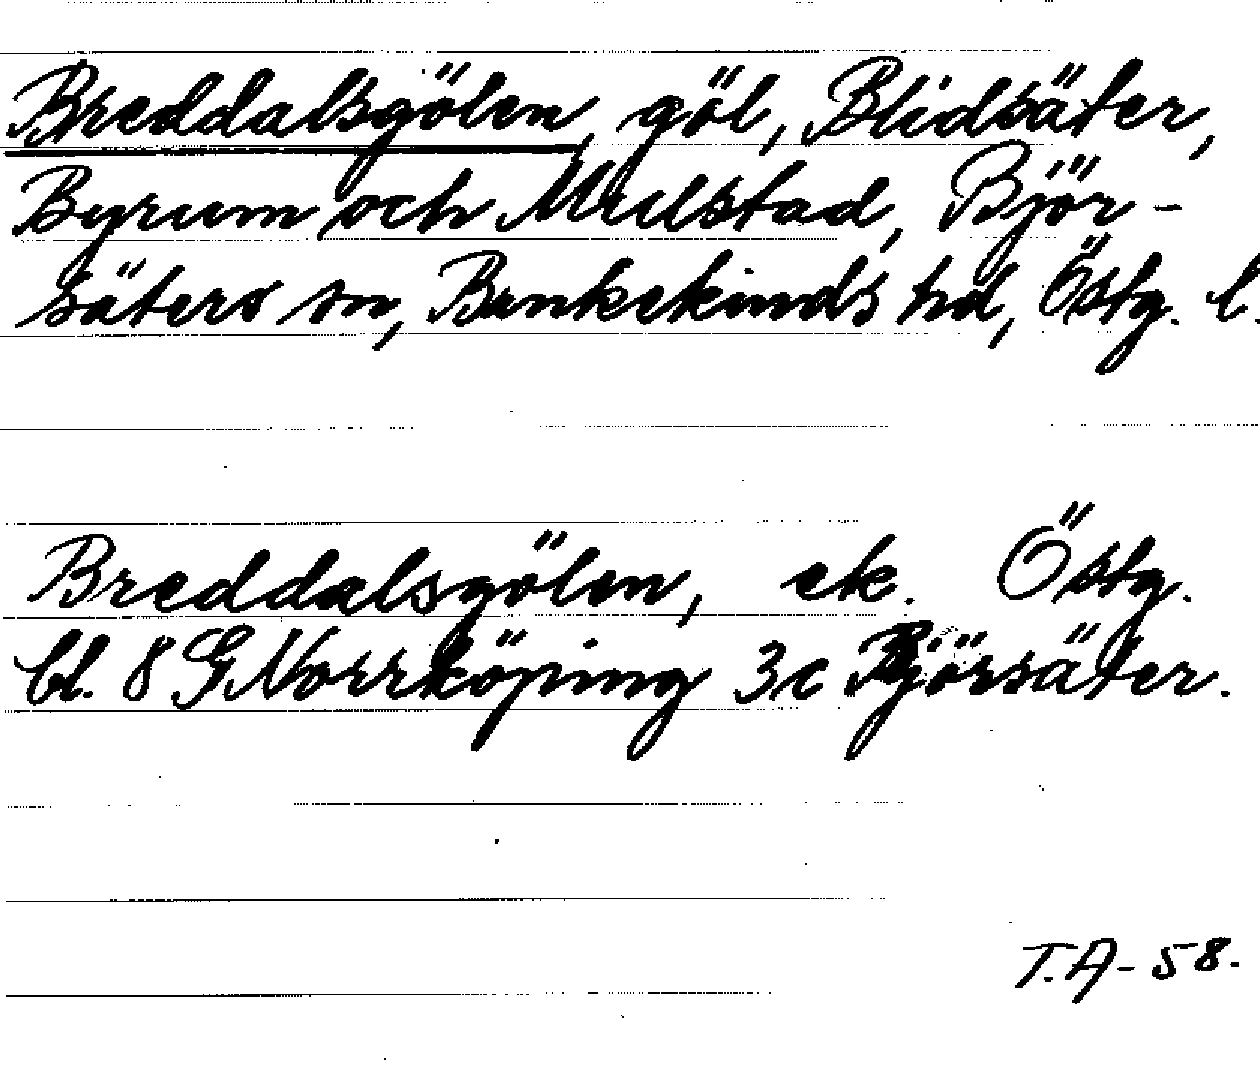 Breddalsgölen, göl, Blidsäter,
Byrum och Mulstad, Björ-
säters sn, Bankekinds hd, Östg. l.
Breddalsgölen, ek. Östg.
bl. 8 G Norrköping 3c Björsäter.
T.A-58.